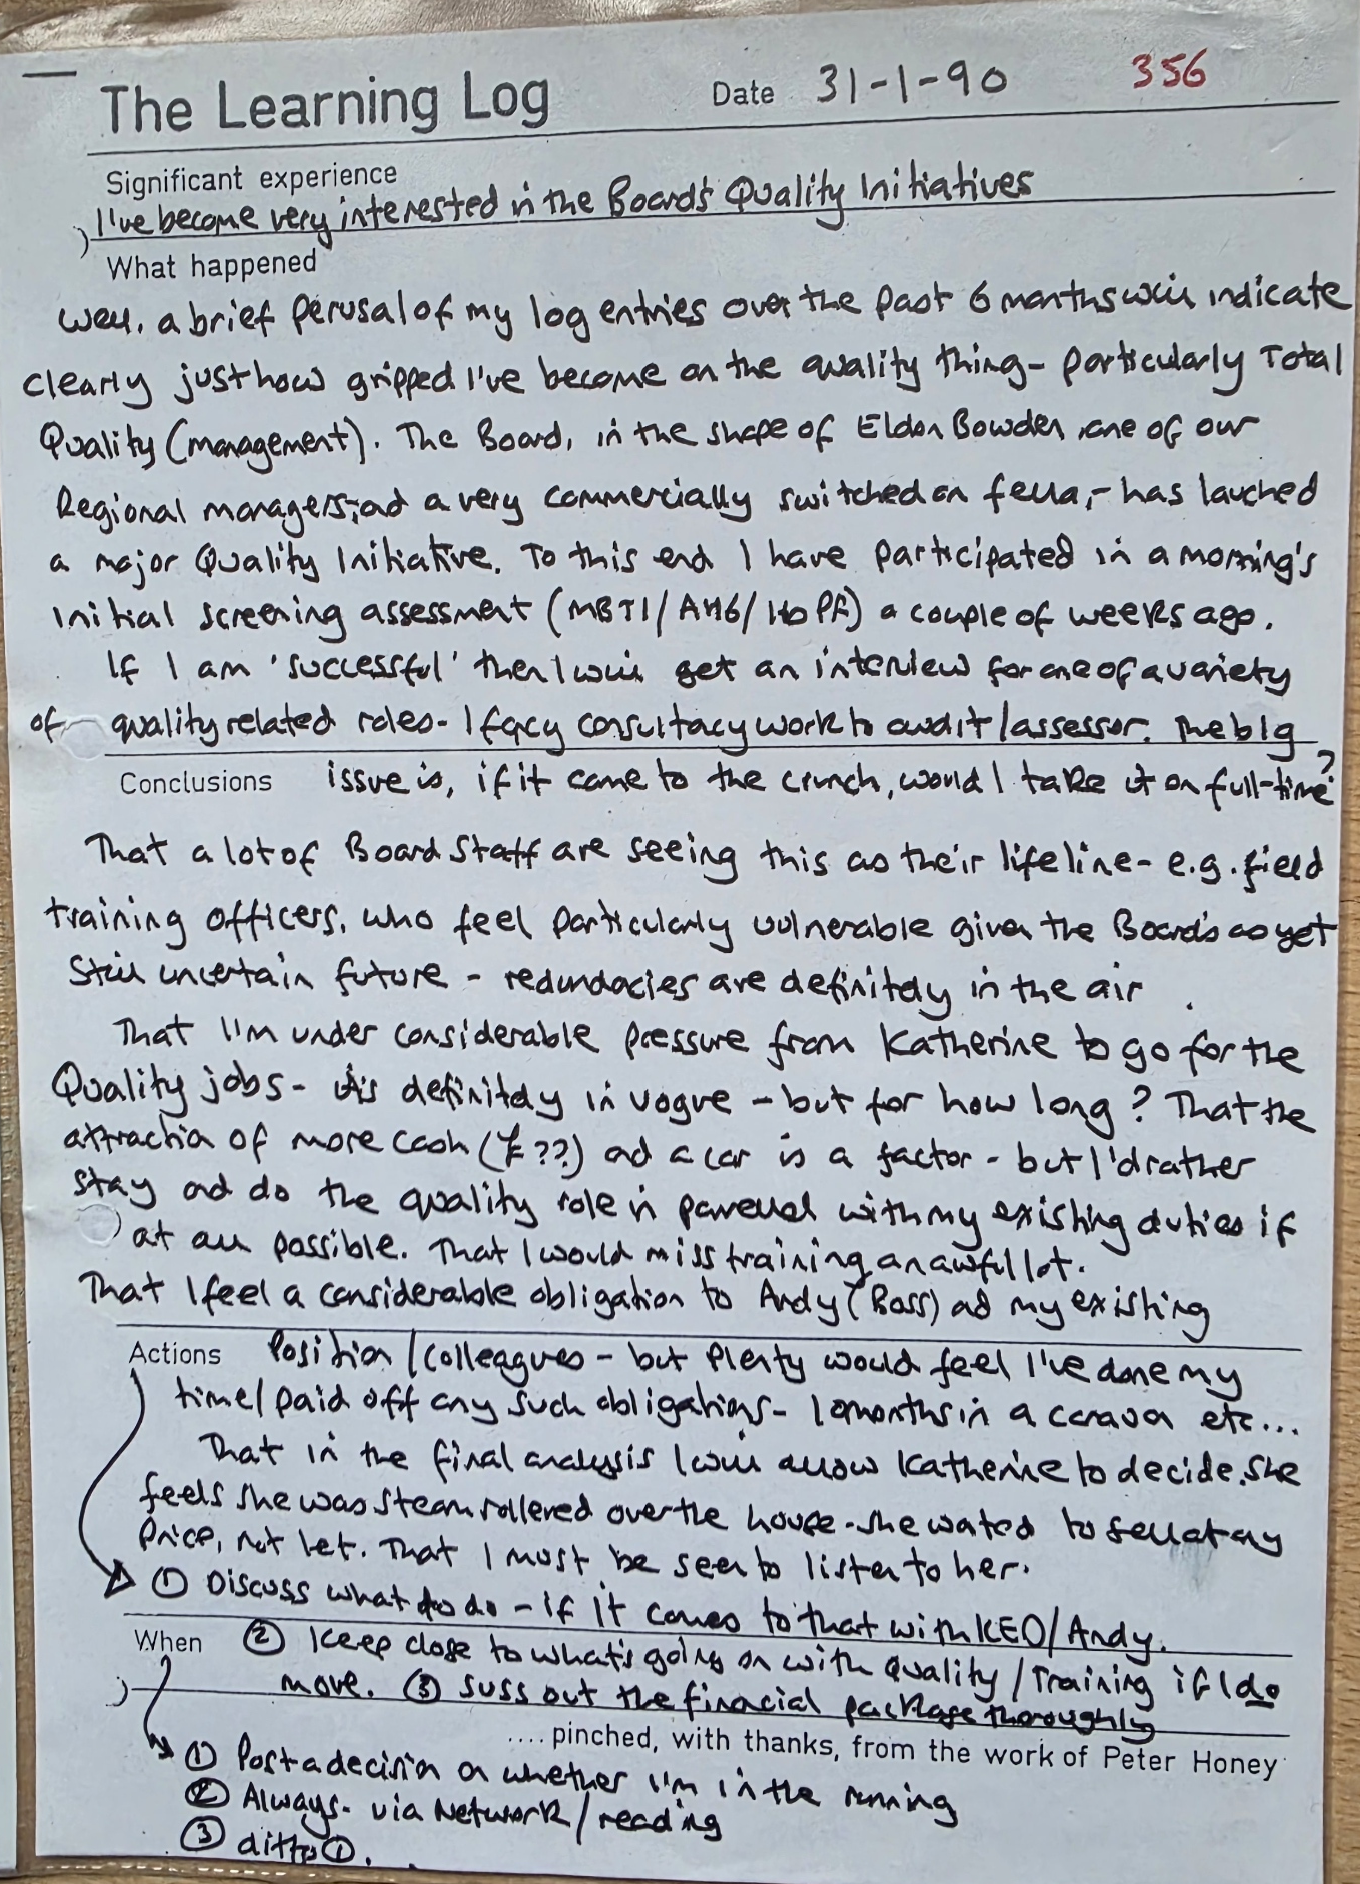 The Learning Log Date 31-1-90 356
Significant experience
I've become very interested in the Board's Quality Initiatives
What happened
Well, a brief perusal of my log entries over the past 6 months will indicate
clearly just how gripped I've become on the quality thing - particularly Total
Quality (management). The Board, in the shape of Eldon Bowden, one of our
Regional managers, ad a very commercially switched on fella, - has lauched
a major Quality Initiative. To this end I have participated in a morning's
initial screening assessment (MBTI/AH6/16PF) a couple of weeks ago.
If I am 'successful' then I will get an interview for one of a variety
of quality related roles - I facy consultacy work to audit/assessor. The big
Conclusions issue is, if it came to the crunch, would I take it on full-time?
That a lot of Board Staff are seeing this as their lifeline - e.g. field
training officers, who feel particularly vulnerable given the Board's as yet
still uncertain future - redundacies are definitely in the air.
That I'm under considerable pressure from Katherine to go for the
Quality jobs - it's definitely in vogue - but for how long? That the
attraction of more cash (£??) ad a car is a factor - but I'd rather
stay ad do the quality role in parallel with my existing duties if
at all possible. That I would miss training an awful lot.
That I feel a considerable obligation to Andy (Boss) ad my existing
Actions Position/Colleagues - but plenty would feel I've done my
time/paid off any such obligations - 10 months in a carava etc...
That in the final analysis I will allow Katherine to decide. She
feels she was steamrollered over the house - she wated to sell at any
price, not let. That I must be seen to listen to her.
① Discuss what to do - if it comes to that with KEO/Andy.
When ② Keep close to what's going on with quality/Training if I do
move. ③ suss out the finacial package thoroughly
.... pinched, with thanks, from the work of Peter Honey
① Post a decision on whether I'm in the running
② Always - via Network/reading
③ ditto ①.